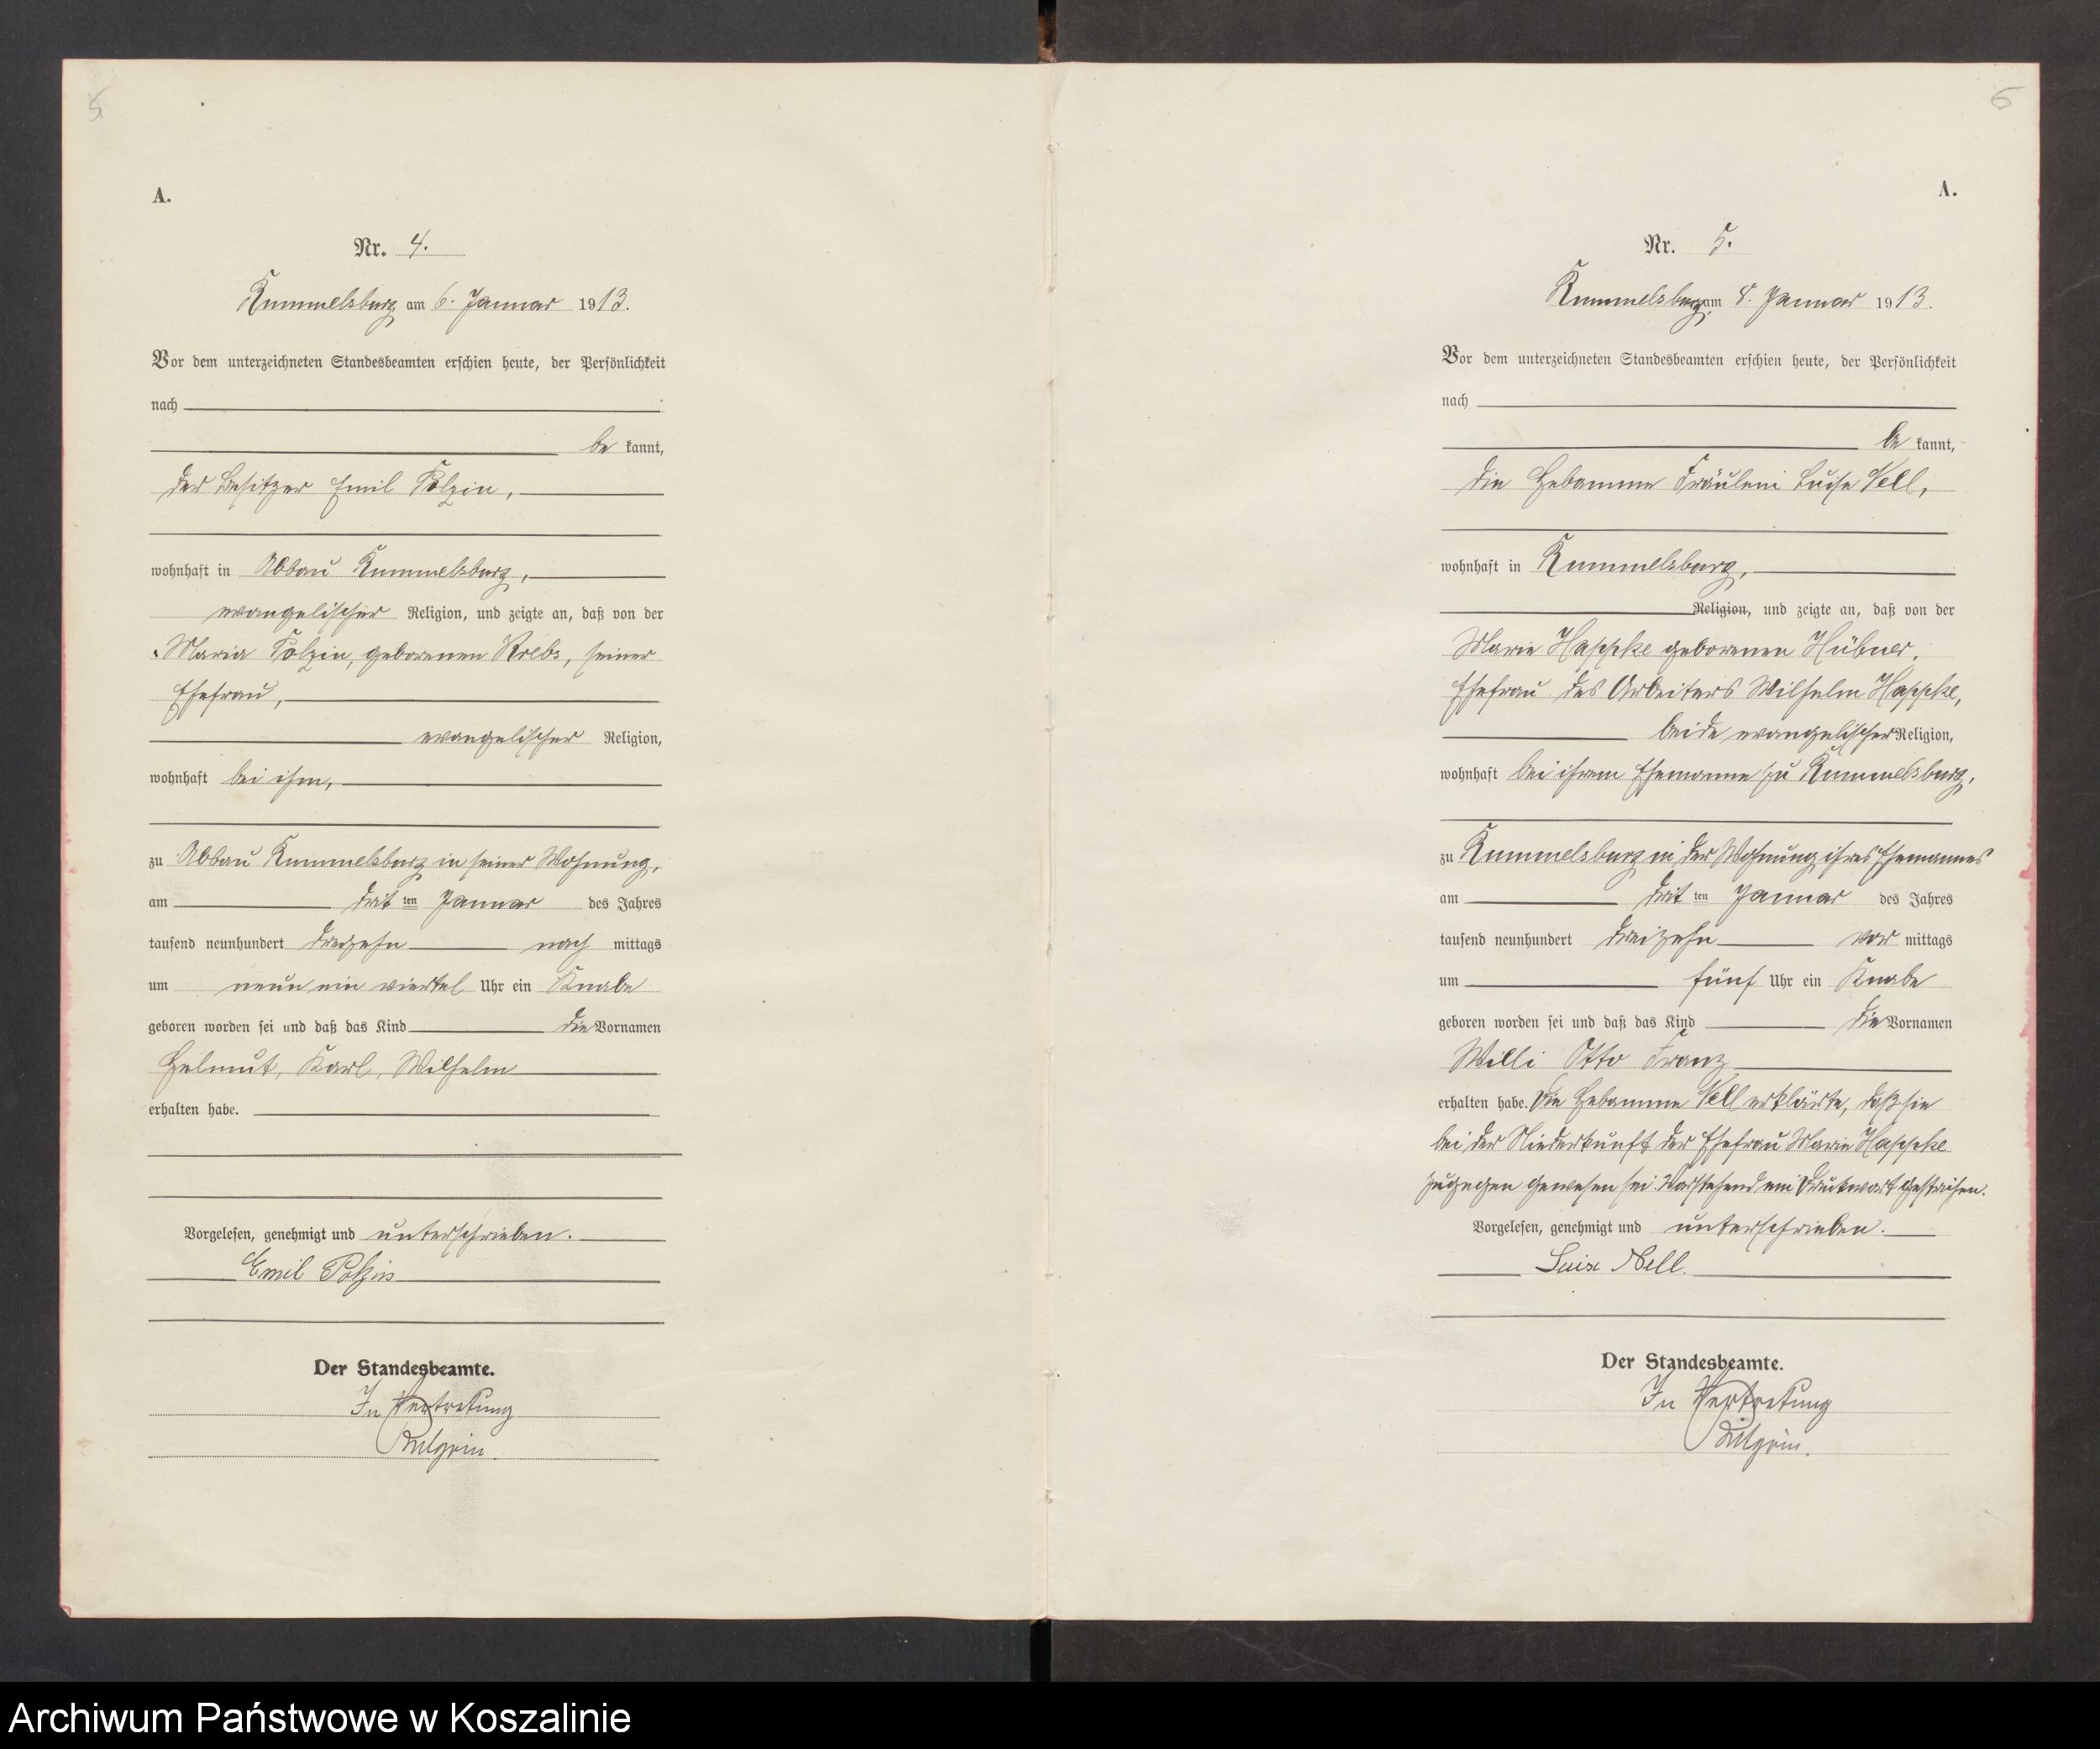 5
A.
Nr. 4.
Rummelsburg am 6. Januar 1913.
Vor dem unterzeichneten Standesbeamten erschien heute, der Persönlichkeit
nach
be kannt,
der Besitzer Emil Polzin,
wohnhaft in Abbau Rummelsburg,
evangelischer Religion, und zeigte an, daß von der
Maria Polzin, geborenen Krebs, seiner
Ehefrau,
evangelischer Religion,
wohnhaft bei ihm,
zu Abbau Rummelsburg in seiner Wohnung,
am drit ten Januar des Jahres
tausend neunhundert dreizehn nach mittags
um neun ein viertel Uhr ein Knabe
geboren worden sei und daß das Kind die Vornamen
Helmut, Karl, Wilhelm
erhalten habe.
Vorgelesen, genehmigt und unterschrieben.
Emil Polzin
Der Standesbeamte.
In Vertretung
6
A.
Nr. 5.
Rummelsburg, am 8. Januar 1913.
Vor dem unterzeichneten Standesbeamten erschien heute, der Persönlichkeit
nach
be kannt,
die Hebamme Fräulein Luise Nell,
wohnhaft in Rummelsburg,
Religion, und zeigte an, daß von der
Marie Happke geborenen Hübner,
Ehefrau des Arbeiters Wilhelm Happke,
beide evangelischer Religion,
wohnhaft bei ihrem Ehemanne zu Rummelsburg,
zu Rummelsburg in der Wohnung ihres Ehemannes
am drit ten Januar des Jahres
tausend neunhundert dreizehn vor mittags
um fünf Uhr ein Knabe
geboren worden sei und daß das Kind die Vornamen
Willi Otto Franz
erhalten habe. Die Hebamme Nell erklärte, daß sie
bei der Niederkunft der Ehefrau Marie Happke
zugegen gewesen sei. Vorstehend ein Druckwort gestrichen.
Vorgelesen, genehmigt und unterschrieben.
Luise Nell.
Der Standesbeamte.
In Vertretung
Archiwum Państwowe w Koszalinie